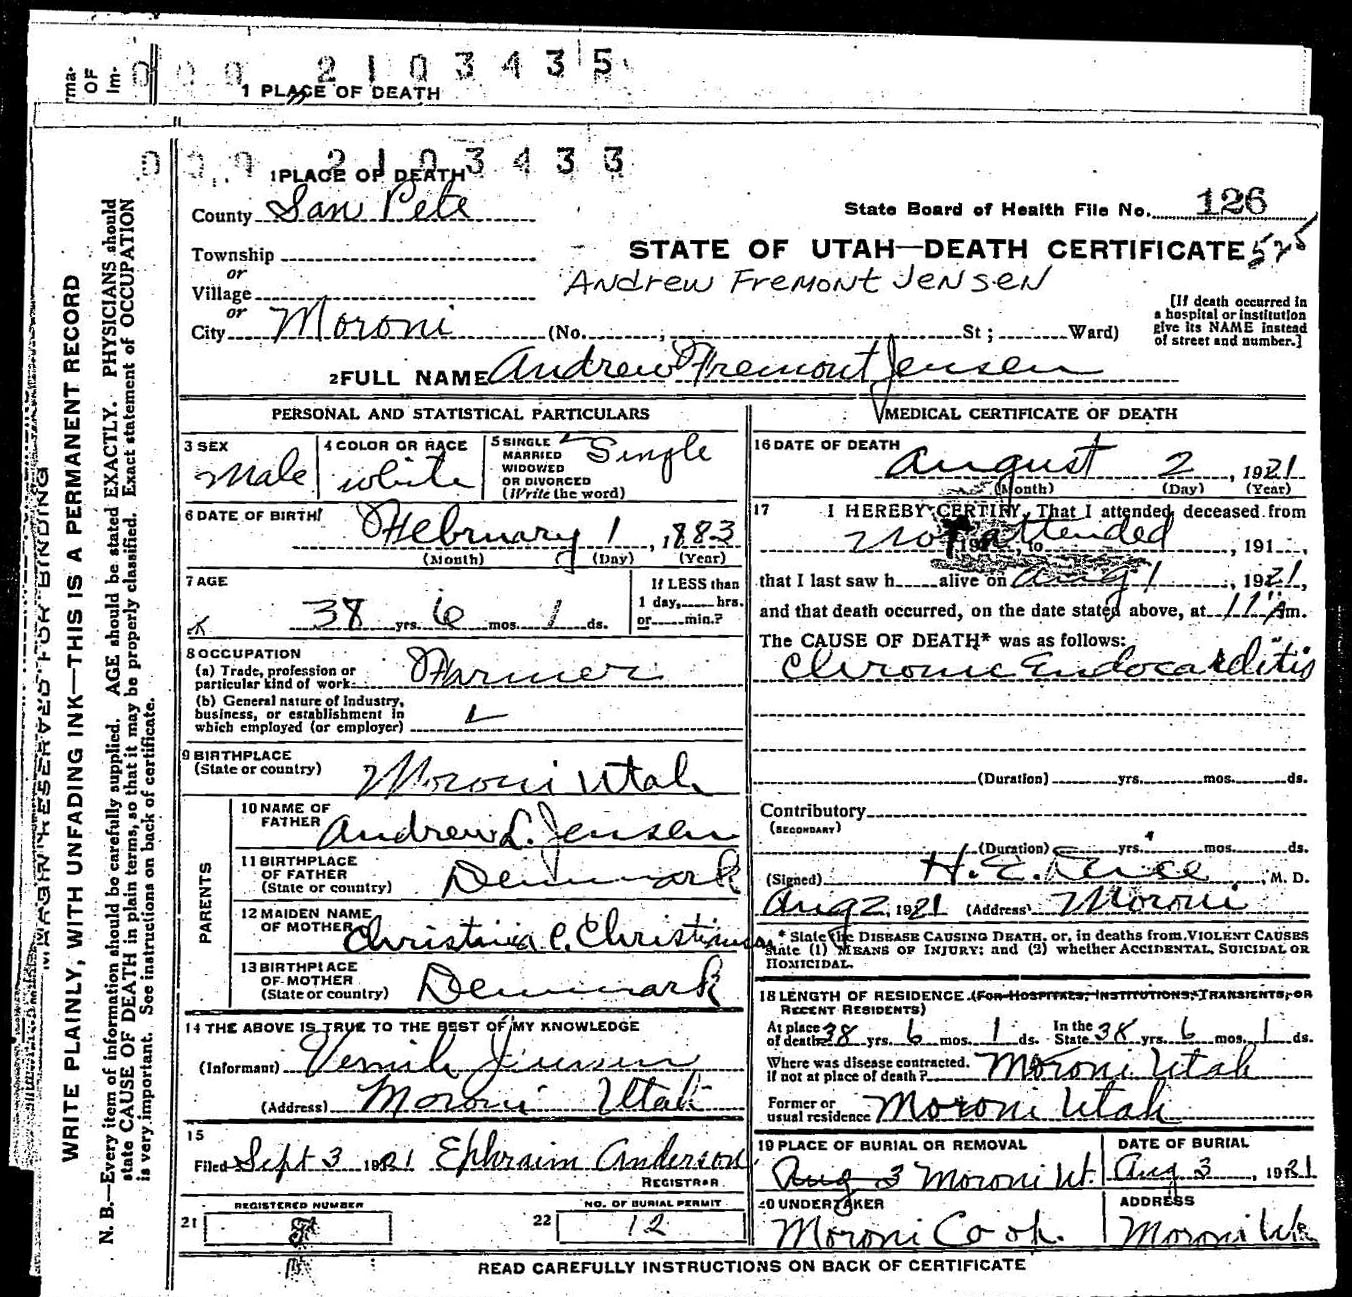 rma-
OF
Im-
0 0 0 2 1 0 3 4 3 5
1 PLACE OF DEATH
0 0 0 2 1 0 3 4 3 3
1 PLACE OF DEATH
County San Pete
State Board of Health File No. 126
Township
or
STATE OF UTAH—DEATH CERTIFICATE 525
Village
Andrew Fremont Jensen
or
City Moroni (No. , St; Ward)
[If death occurred in
a hospital or institution
give its NAME instead
of street and number.]
2 FULL NAME Andrew Fremont Jensen
PERSONAL AND STATISTICAL PARTICULARS
3 SEX
Male
4 COLOR OR RACE
white
5 SINGLE
MARRIED
WIDOWED
OR DIVORCED
(Write the word)
Single
6 DATE OF BIRTH
February 1, 1883
(Month) (Day) (Year)
7 AGE
38 yrs. 6 mos. 1 ds.
If LESS than
1 day, hrs.
or min.?
8 OCCUPATION
(a) Trade, profession or
particular kind of work Farmer
(b) General nature of Industry,
business, or establishment in
which employed (or employer)
9 BIRTHPLACE
(State or country) Moroni Utah
PARENTS
10 NAME OF
FATHER Andrew L. Jensen
11 BIRTHPLACE
OF FATHER
(State or country) Denmark
12 MAIDEN NAME
OF MOTHER Christina C. Christiansen
13 BIRTHPLACE
OF MOTHER
(State or country) Denmark
14 THE ABOVE IS TRUE TO THE BEST OF MY KNOWLEDGE
(Informant) Jensen
(Address) Moroni Utah
15
Filed Sept 3 1921 Ephraim Anderson
REGISTRAR
21 REGISTERED NUMBER
22 NO. OF BURIAL PERMIT
12
MEDICAL CERTIFICATE OF DEATH
16 DATE OF DEATH
August 2, 1921
(Month) (Day) (Year)
17 I HEREBY CERTIFY, That I attended deceased from
Not attended, 191 ,
that I last saw h alive on Aug 1, 1921,
and that death occurred, on the date stated above, at 11 A m.
The CAUSE OF DEATH* was as follows:
Chronic Endocarditis
(Duration) yrs. mos. ds.
Contributory
(SECONDARY)
(Duration) yrs. mos. ds.
(Signed) H. E. , M. D.
Aug 2, 1921 (Address) Moroni
* State the DISEASE CAUSING DEATH, or, in deaths from VIOLENT CAUSES
state (1) MEANS OF INJURY; and (2) whether ACCIDENTAL, SUICIDAL OR
HOMICIDAL.
18 LENGTH OF RESIDENCE (FOR HOSPITALS, INSTITUTIONS, TRANSIENTS, OR
RECENT RESIDENTS)
At place
of death 38 yrs. 6 mos. 1 ds. In the
State 38 yrs 6 mos. 1 ds.
Where was disease contracted,
if not at place of death? Moroni Utah
Former or
usual residence Moroni Utah
19 PLACE OF BURIAL OR REMOVAL
Aug 3 Moroni Ut.
DATE OF BURIAL
Aug 3, 1921
20 UNDERTAKER
Moroni Co op.
ADDRESS
Moroni Ut
READ CAREFULLY INSTRUCTIONS ON BACK OF CERTIFICATE
MARGIN RESERVED FOR BINDING
WRITE PLAINLY, WITH UNFADING INK—THIS IS A PERMANENT RECORD
N. B.—Every item of information should be carefully supplied. AGE should be stated EXACTLY. PHYSICIANS should
state CAUSE OF DEATH in plain terms, so that it may be properly classified. Exact statement of OCCUPATION
is very important. See instructions on back of certificate.